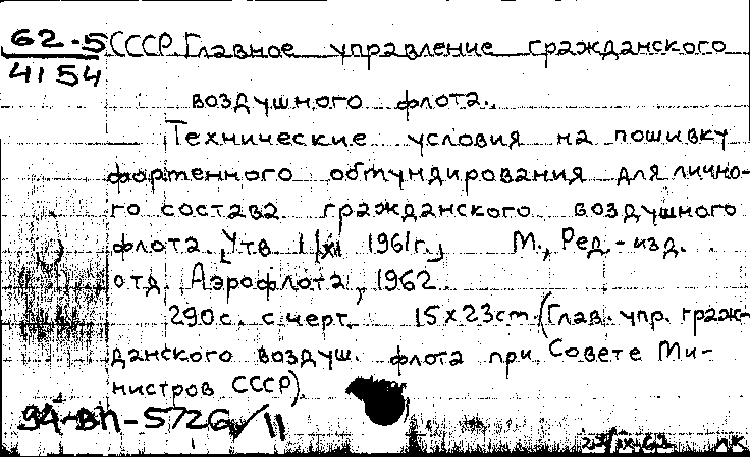 62-5 СССР. Главное управление гражданского
4154
воздушного флота.
Технические условия на пошивку
форменного обмундирования для лично-
го состава гражданского воздушного
флота. [Утв. 1/XI 1961г.] М., Ред.-изд.
отд. Аэрофлота, 1962.
290с. с черт. 15x23cm. (Глав. упр. граж-
данского воздуш. флота при Совете Ми-
нистров СССР).
94-ВП-5726/11